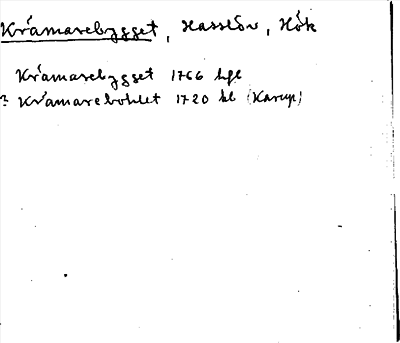 Kråmarebygget, Hasslöv, Hök
Kråmarebygget 1766 hfl
? Kråmarebohlet 1720 kb (Karup)